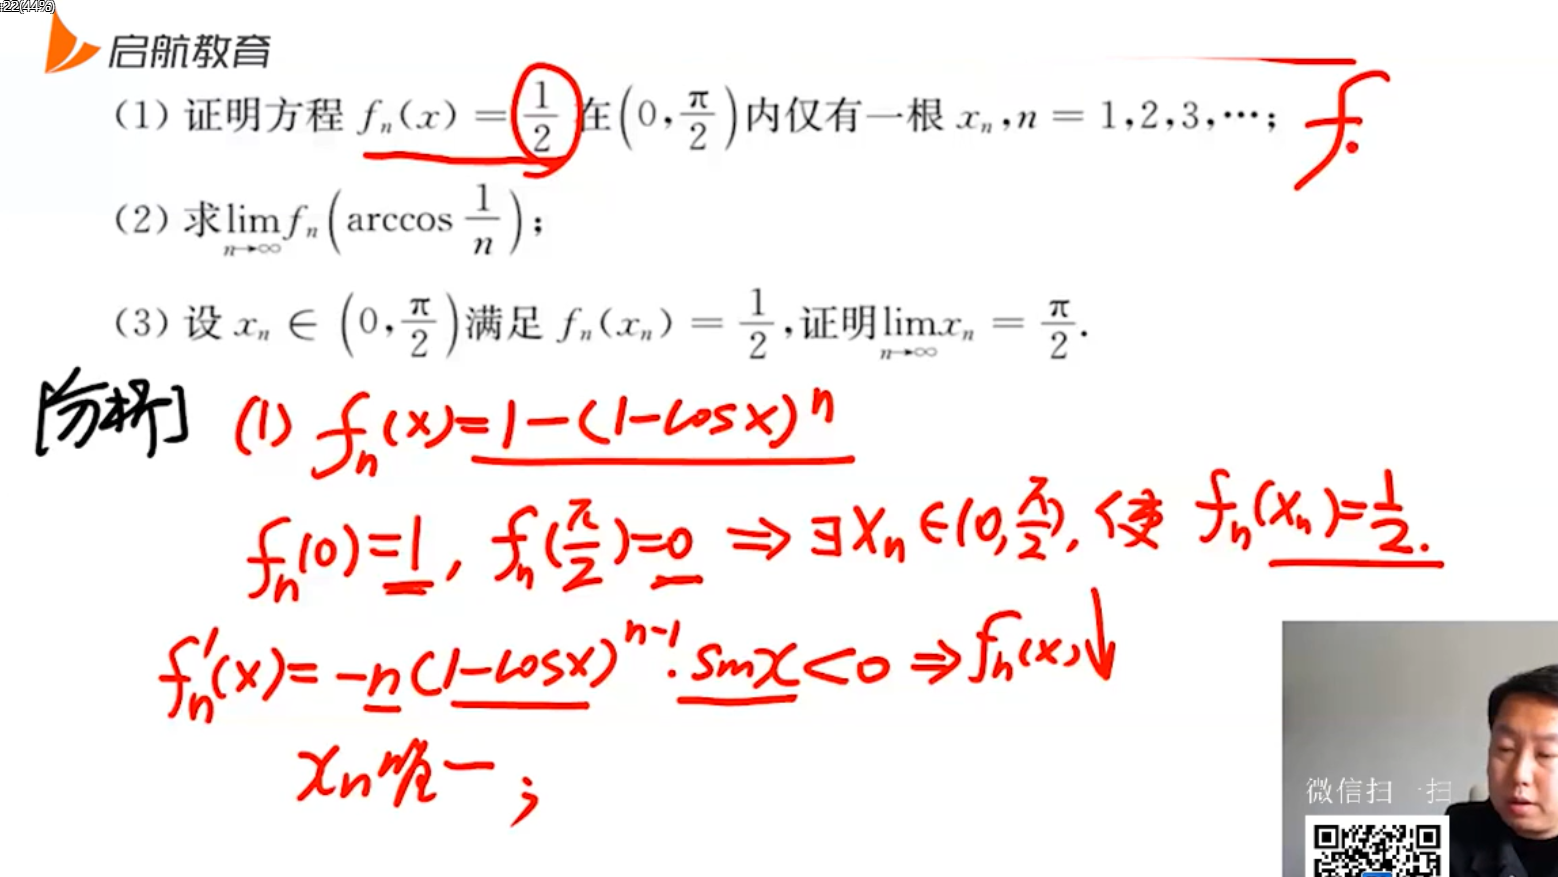 +22(44%)
启航教育
(1) 证明方程 fₙ(x) = 1/2 在(0, π/2)内仅有一根 xₙ, n = 1,2,3,⋯;
f
(2) 求 lim_{n→∞} fₙ(arccos 1/n);
(3) 设 xₙ ∈ (0, π/2)满足 fₙ(xₙ) = 1/2, 证明 lim_{n→∞} xₙ = π/2.
[分析] (1) fₙ(x)=1-(1-cosx)ⁿ
fₙ(0)=1, fₙ(π/2)=0 ⇒ ∃xₙ∈(0,π/2), 使 fₙ(xₙ)=1/2.
fₙ'(x)=-n(1-cosx)ⁿ⁻¹·sinx<0 ⇒ fₙ(x)↓
xₙ唯一;
微信扫一扫